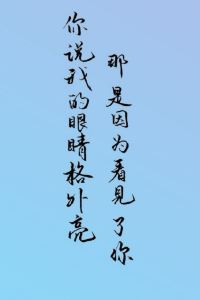 你说我的眼睛格外亮
那是因为看見了你